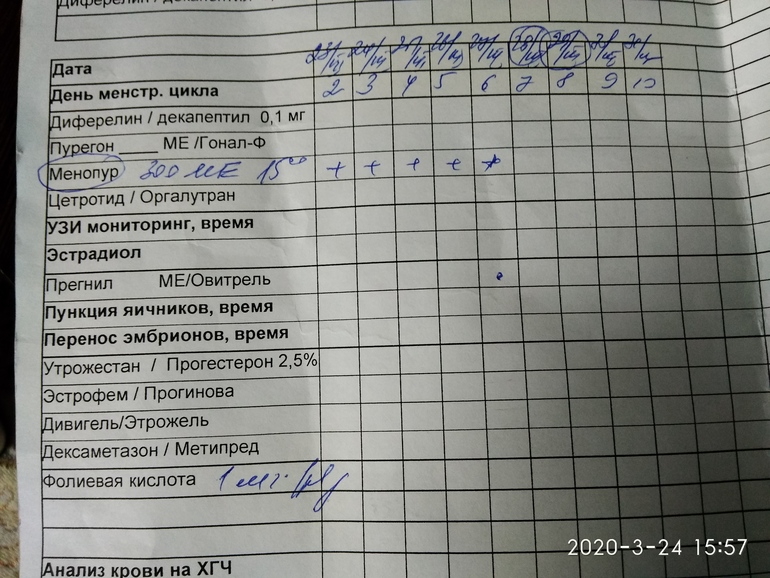 Диферелин / декапептил
Дата 23/III 24/III 25/III 26/III 27/III 28/III 29/III 30/III 31/III
День менстр. цикла 2 3 4 5 6 7 8 9 10
Диферелин / декапептил 0,1 мг
Пурегон ____ МЕ /Гонал-Ф
Менопур 300 МЕ 15⁰⁰ + + + + +
Цетротид / Оргалутран
УЗИ мониторинг, время
Эстрадиол
Прегнил МЕ/Овитрель
Пункция яичников, время
Перенос эмбрионов, время
Утрожестан / Прогестерон 2,5%
Эстрофем / Прогинова
Дивигель/Этрожель
Дексаметазон / Метипред
Фолиевая кислота 1 мг.
Анализ крови на ХГЧ
2020-3-24 15:57